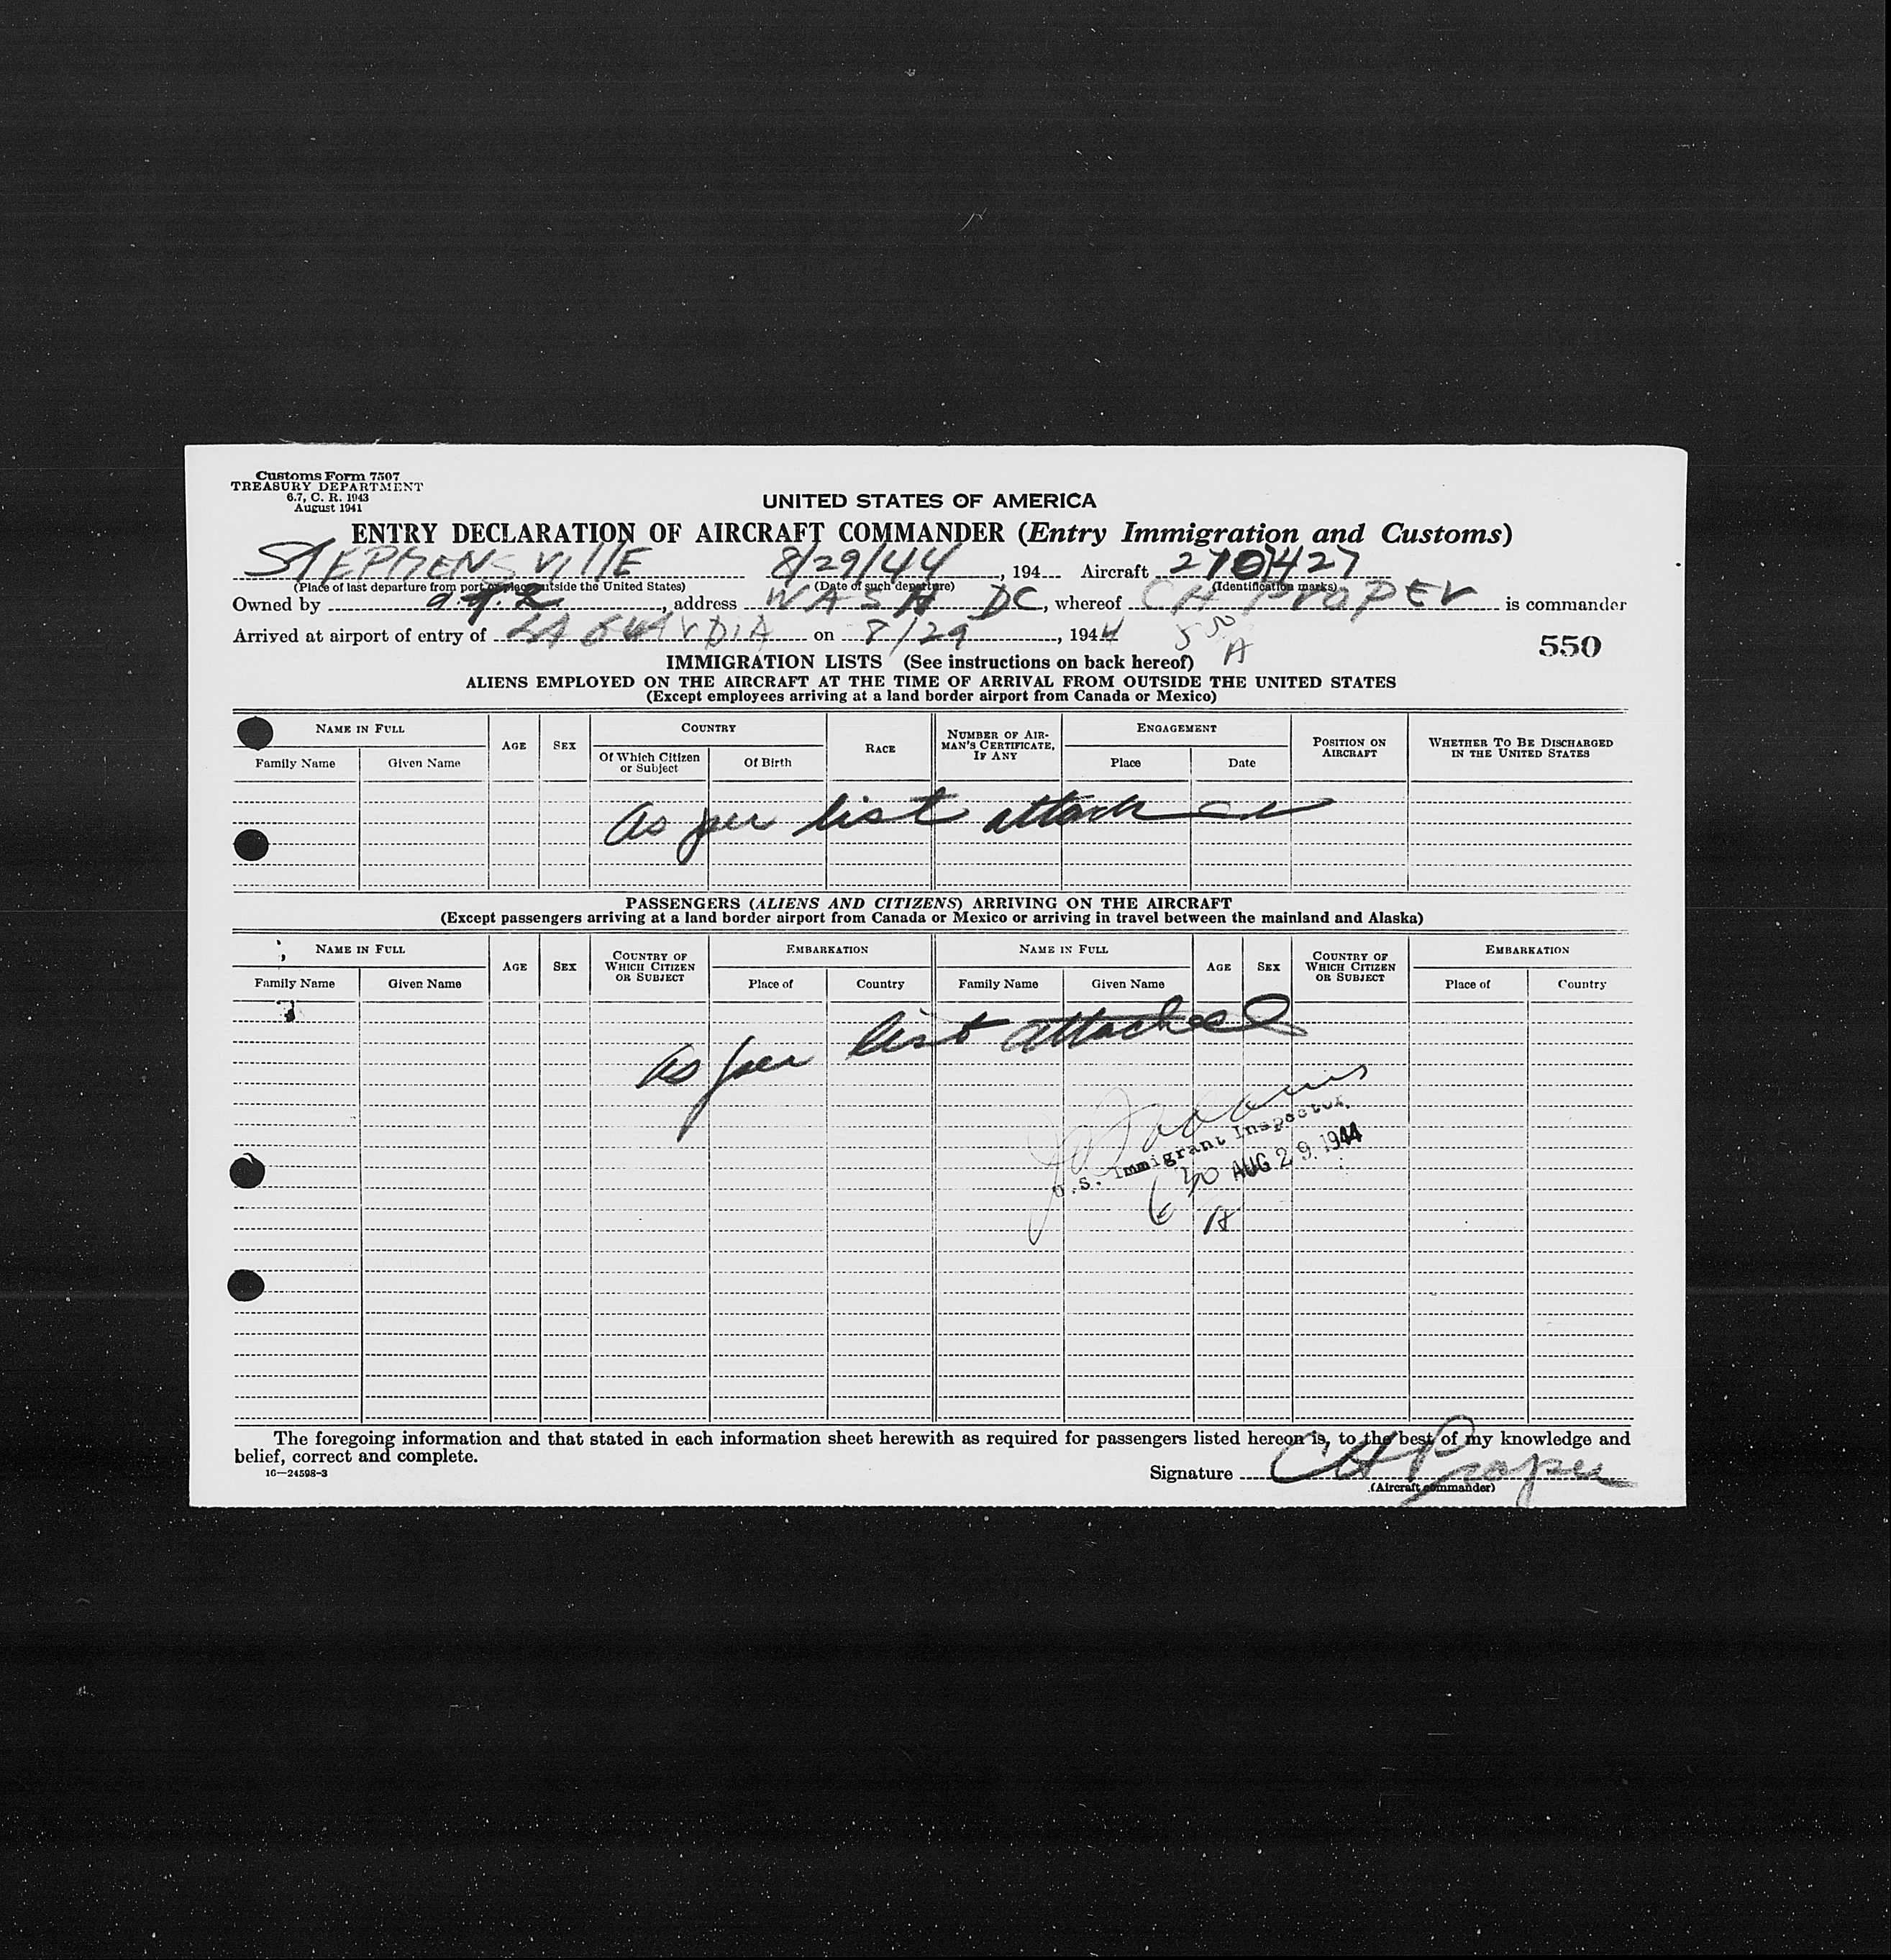 Customs Form 7507
TREASURY DEPARTMENT
6.7, C. R. 1943
August 1941
UNITED STATES OF AMERICA
ENTRY DECLARATION OF AIRCRAFT COMMANDER (Entry Immigration and Customs)
STEPHENSVIllE 8/29/44, 194 Aircraft
(Place of last departure from port or place outside the United States) (Date of such departure) (Identification marks)
Owned by , address WASH DC, whereof CH PROPER is commander
Arrived at airport of entry of LA GUARDIA on 8/29, 1944
550
A
550
IMMIGRATION LISTS (See instructions on back hereof)
ALIENS EMPLOYED ON THE AIRCRAFT AT THE TIME OF ARRIVAL FROM OUTSIDE THE UNITED STATES
(Except employees arriving at a land border airport from Canada or Mexico)
NAME IN FULL AGE SEX COUNTRY RACE NUMBER OF AIRMAN'S CERTIFICATE, IF ANY ENGAGEMENT POSITION ON AIRCRAFT WHETHER TO BE DISCHARGED IN THE UNITED STATES
Family Name Given Name Of Which Citizen or Subject Of Birth Place Date
As per list attached
PASSENGERS (ALIENS AND CITIZENS) ARRIVING ON THE AIRCRAFT
(Except passengers arriving at a land border airport from Canada or Mexico or arriving in travel between the mainland and Alaska)
NAME IN FULL AGE SEX COUNTRY OF WHICH CITIZEN OR SUBJECT EMBARKATION NAME IN FULL AGE SEX COUNTRY OF WHICH CITIZEN OR SUBJECT EMBARKATION
Family Name Given Name Place of Country Family Name Given Name Place of Country
As per list attached
U.S. Immigrant Inspector
AUG 29 1944
A
The foregoing information and that stated in each information sheet herewith as required for passengers listed hereon is, to the best of my knowledge and
belief, correct and complete.
16—24598-3
Signature CH Proper
(Aircraft commander)